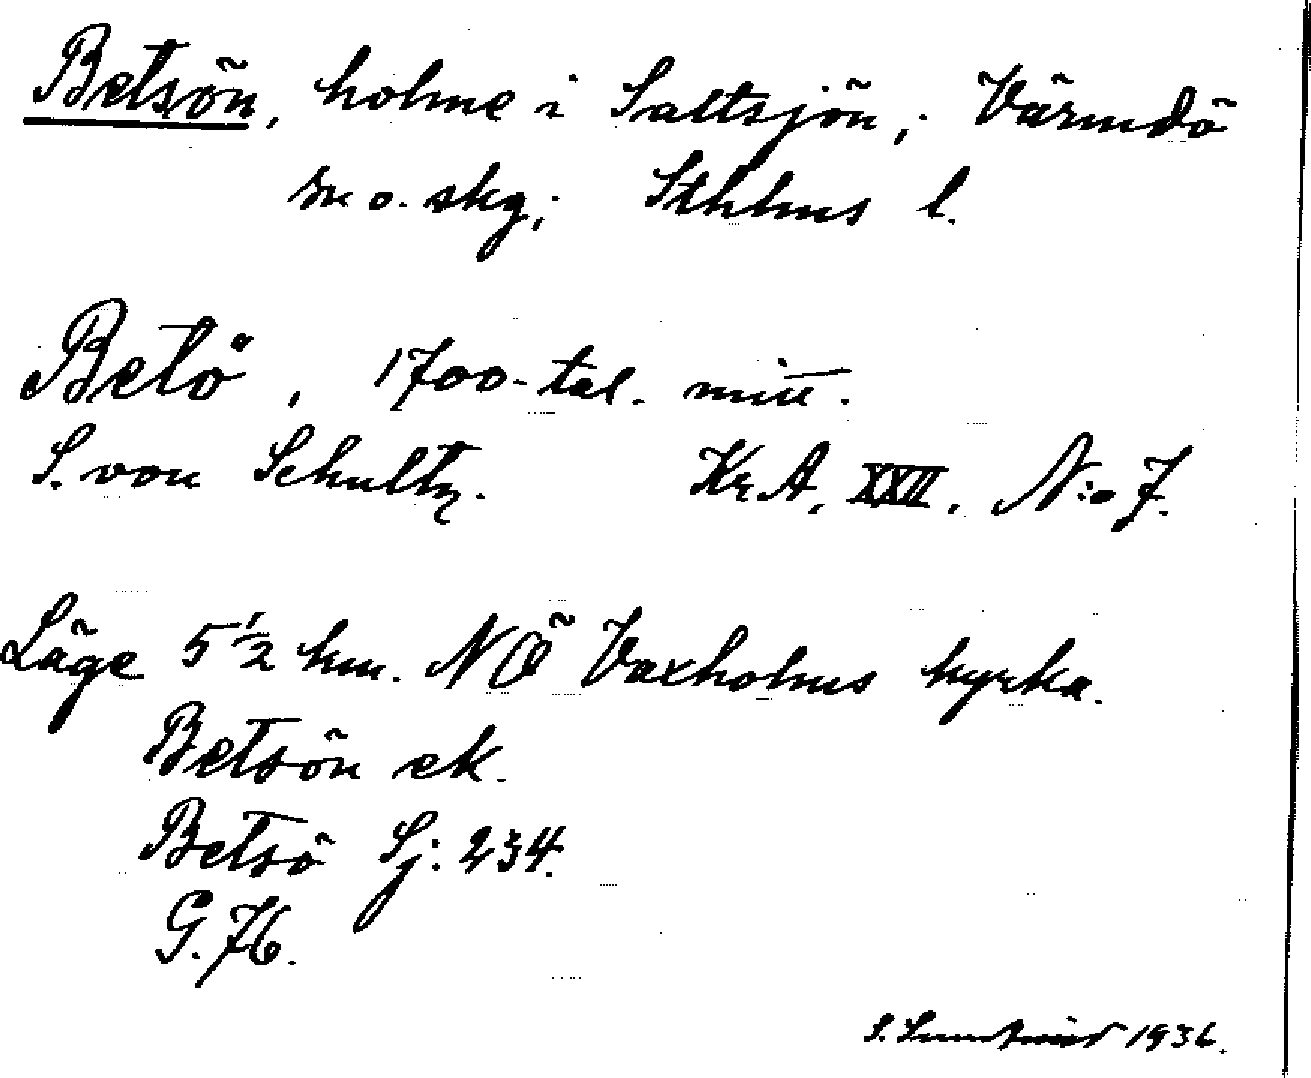 Betsön, holme i Saltsjön, Värmdö
sn o. skg; Sthlms l.
Betö, 1700-tal. mitt.
S. von Schultz. Kr.A, XXII, N:o 7.
Läge 5 1/2 km. NÖ Vaxholms kyrka.
Betsön ek.
Betsö Sj: 234.
G. 76.
S. 1936.